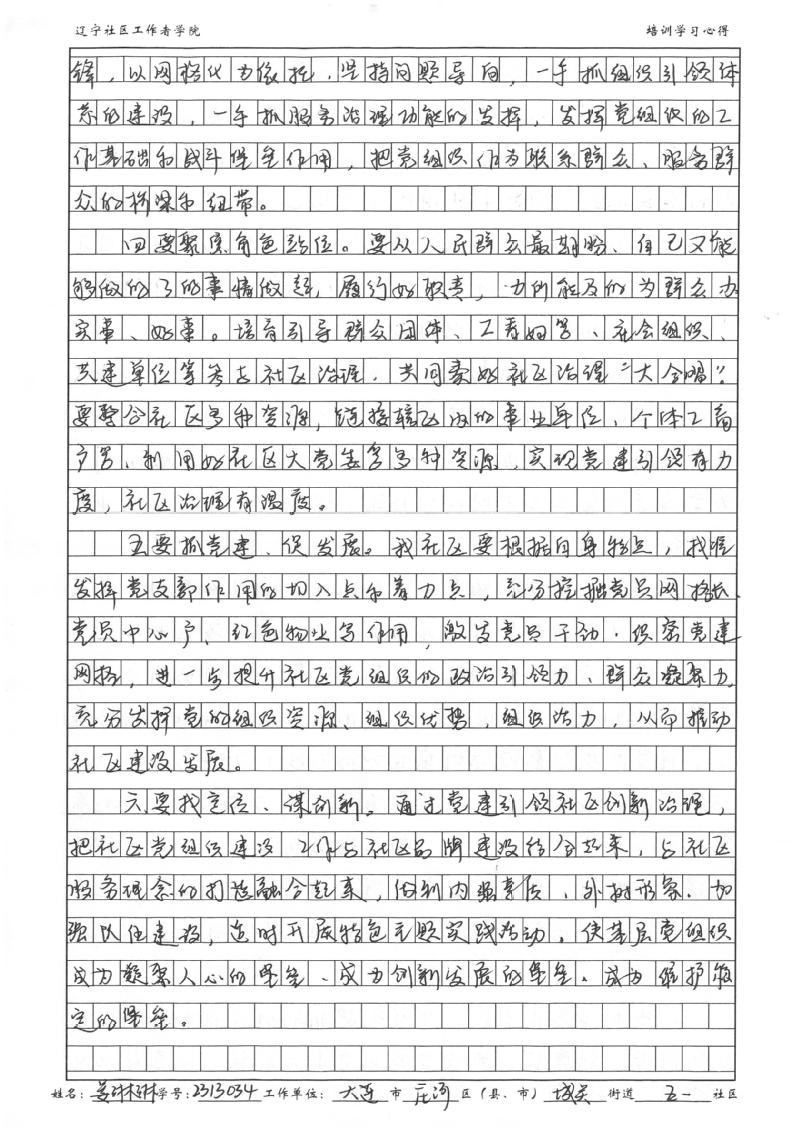 辽宁社区工作者学院 培训学习心得
锋，以网格化为依托，坚持问题导向，一手抓组织引领体
系的建设，一手抓服务治理功能的发挥，发挥党组织的工
作基础和战斗堡垒作用，把党组织作为联系群众、服务群
众的桥梁和纽带。
四要聚焦角色站位。要从人民群众最期盼、自己又能
够做的了的事情做起，履行好职责，力所能及的为群众办
实事、好事。培育引导群众团体、工青妇等、社会组织、
共建单位等参与社区治理，共同奏好社区治理“大合唱”。
要整合社区多种资源，链接辖区内的事业单位、个体工商
户等，利用好社区大党委等多种资源，实现党建引领有力
度，社区治理有温度。
五要抓党建、促发展。我社区要根据自身特点，找准
发挥党支部作用的切入点和着力点，充分挖掘党员网格长、
党员中心户、红色物业等作用，激发党员干劲，织密党建
网格，进一步提升社区党组织的政治引领力、群众凝聚力，
充分发挥党的组织资源、组织优势，组织活力，从而推动
社区建设发展。
六要找定位、谋创新。通过党建引领社区创新治理，
把社区党组织建设工作与社区品牌建设结合起来，与社区
服务理念的打造融合起来，做到内强素质、外树形象，加
强队伍建设，适时开展特色主题实践活动，使基层党组织
成为凝聚人心的堡垒、成为创新发展的堡垒、成为维护稳
定的堡垒。
姓名：姜 学号：2313034 工作单位：大连市庄河区（县、市）城关街道五一社区